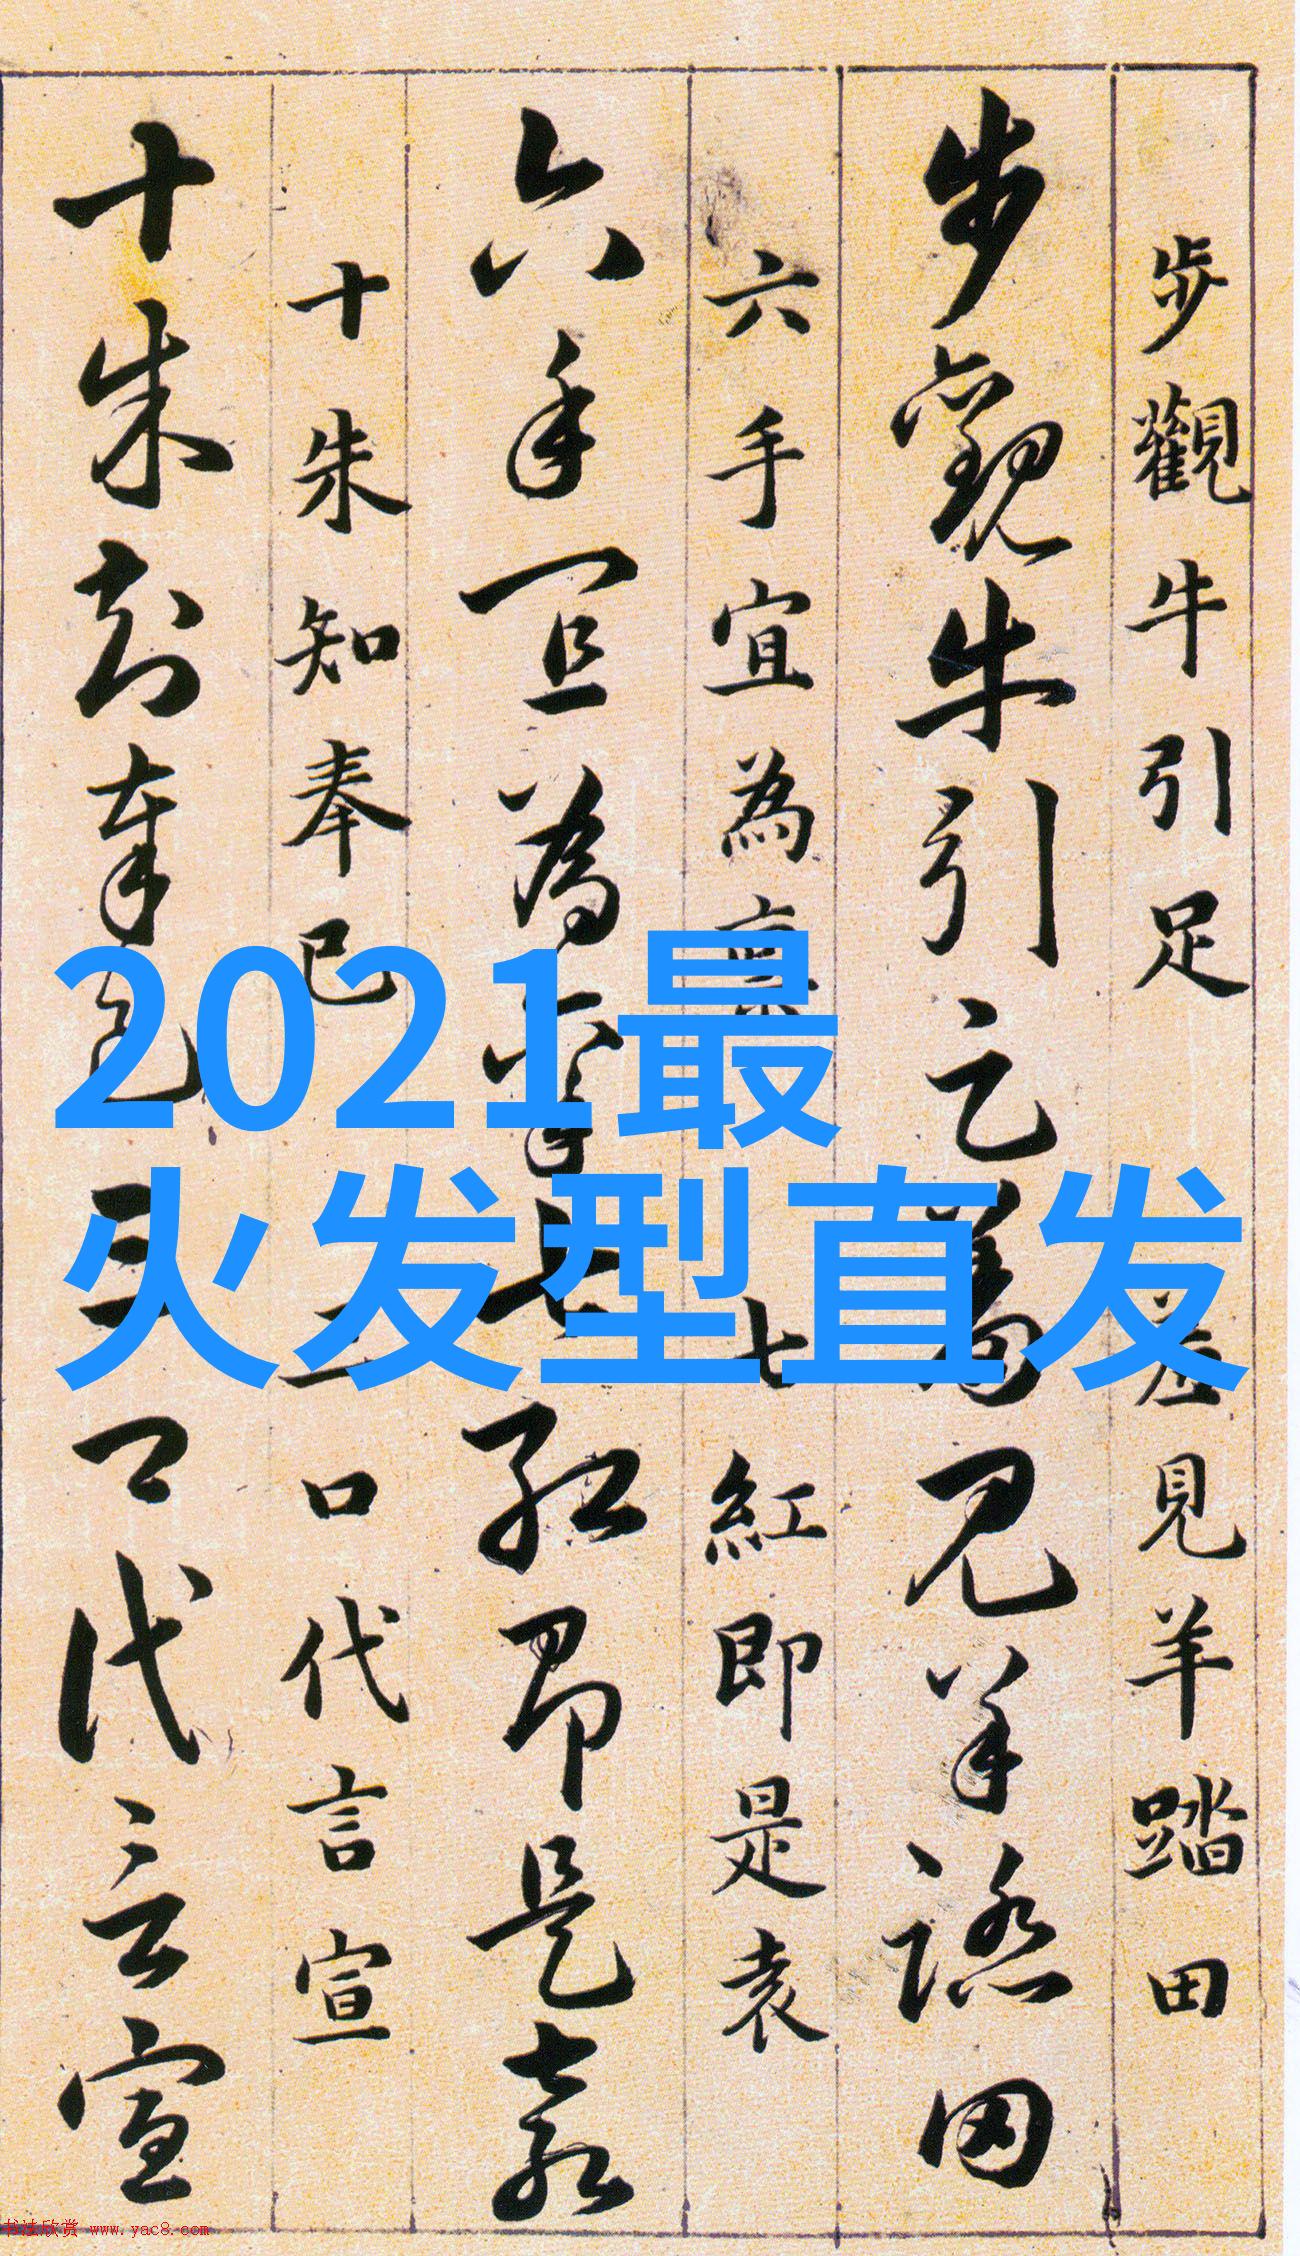 步觀牛引足羞見羊踏田
步觀牛引足羞見羊踏田
六手宜為稟七紅即是袁
六手宜為稟七紅即是袁
十朱知奉已三口代言宣
十朱知奉已三口代言宣
2021最
火发型直发
书法欣赏 www.yac8.com